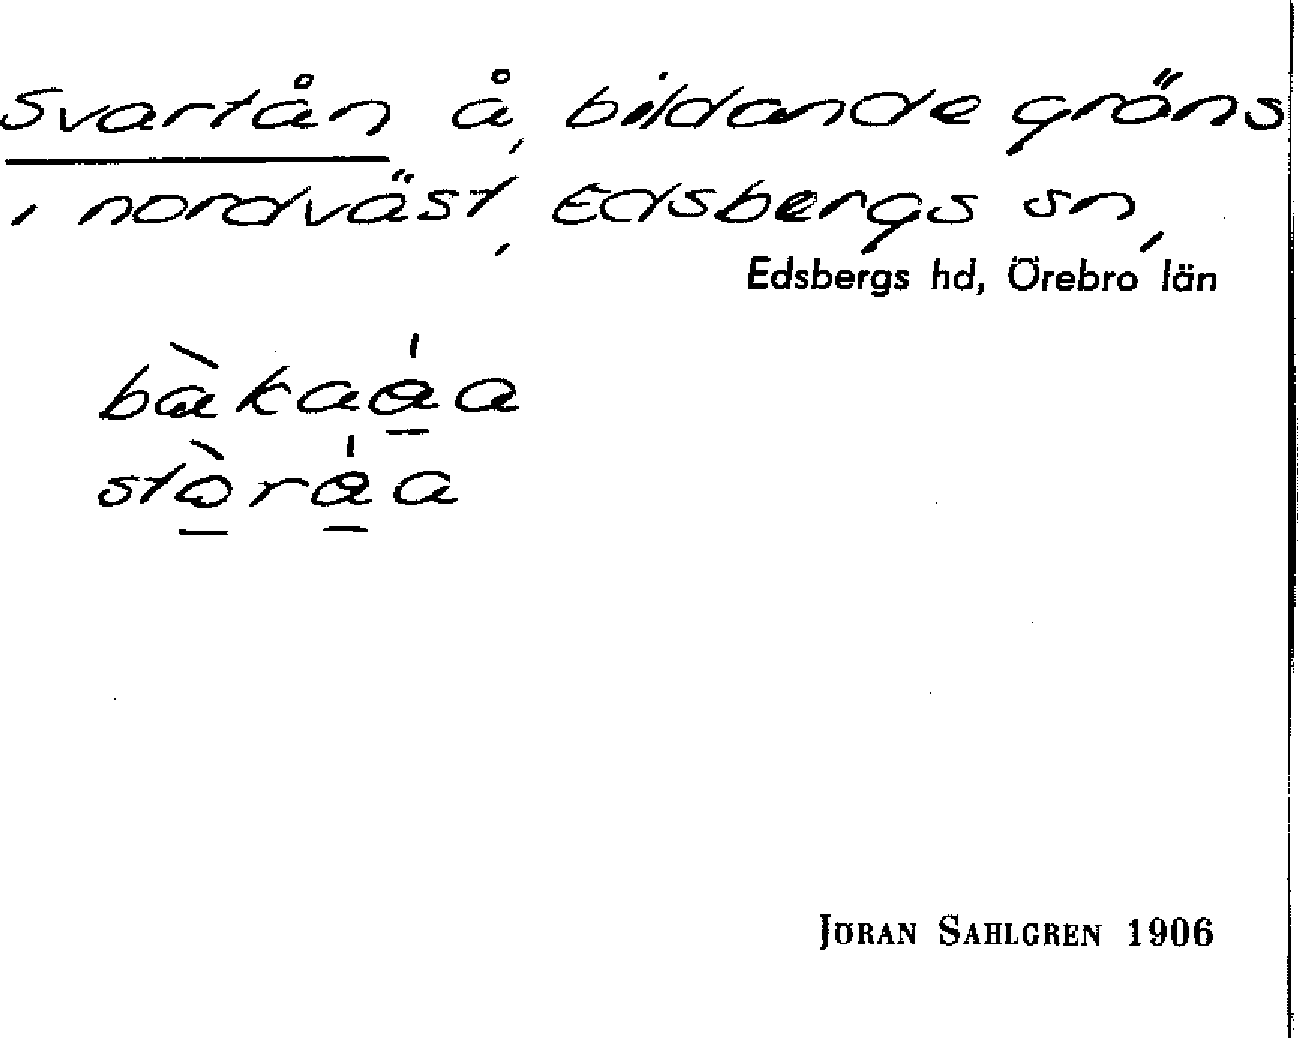 Svartån å, bildande gräns
i nordväst, Edsbergs sn,
Edsbergs hd, Örebro län
bàkaá̲a
stò̲rá̲a
JÖRAN SAHLGREN 1906